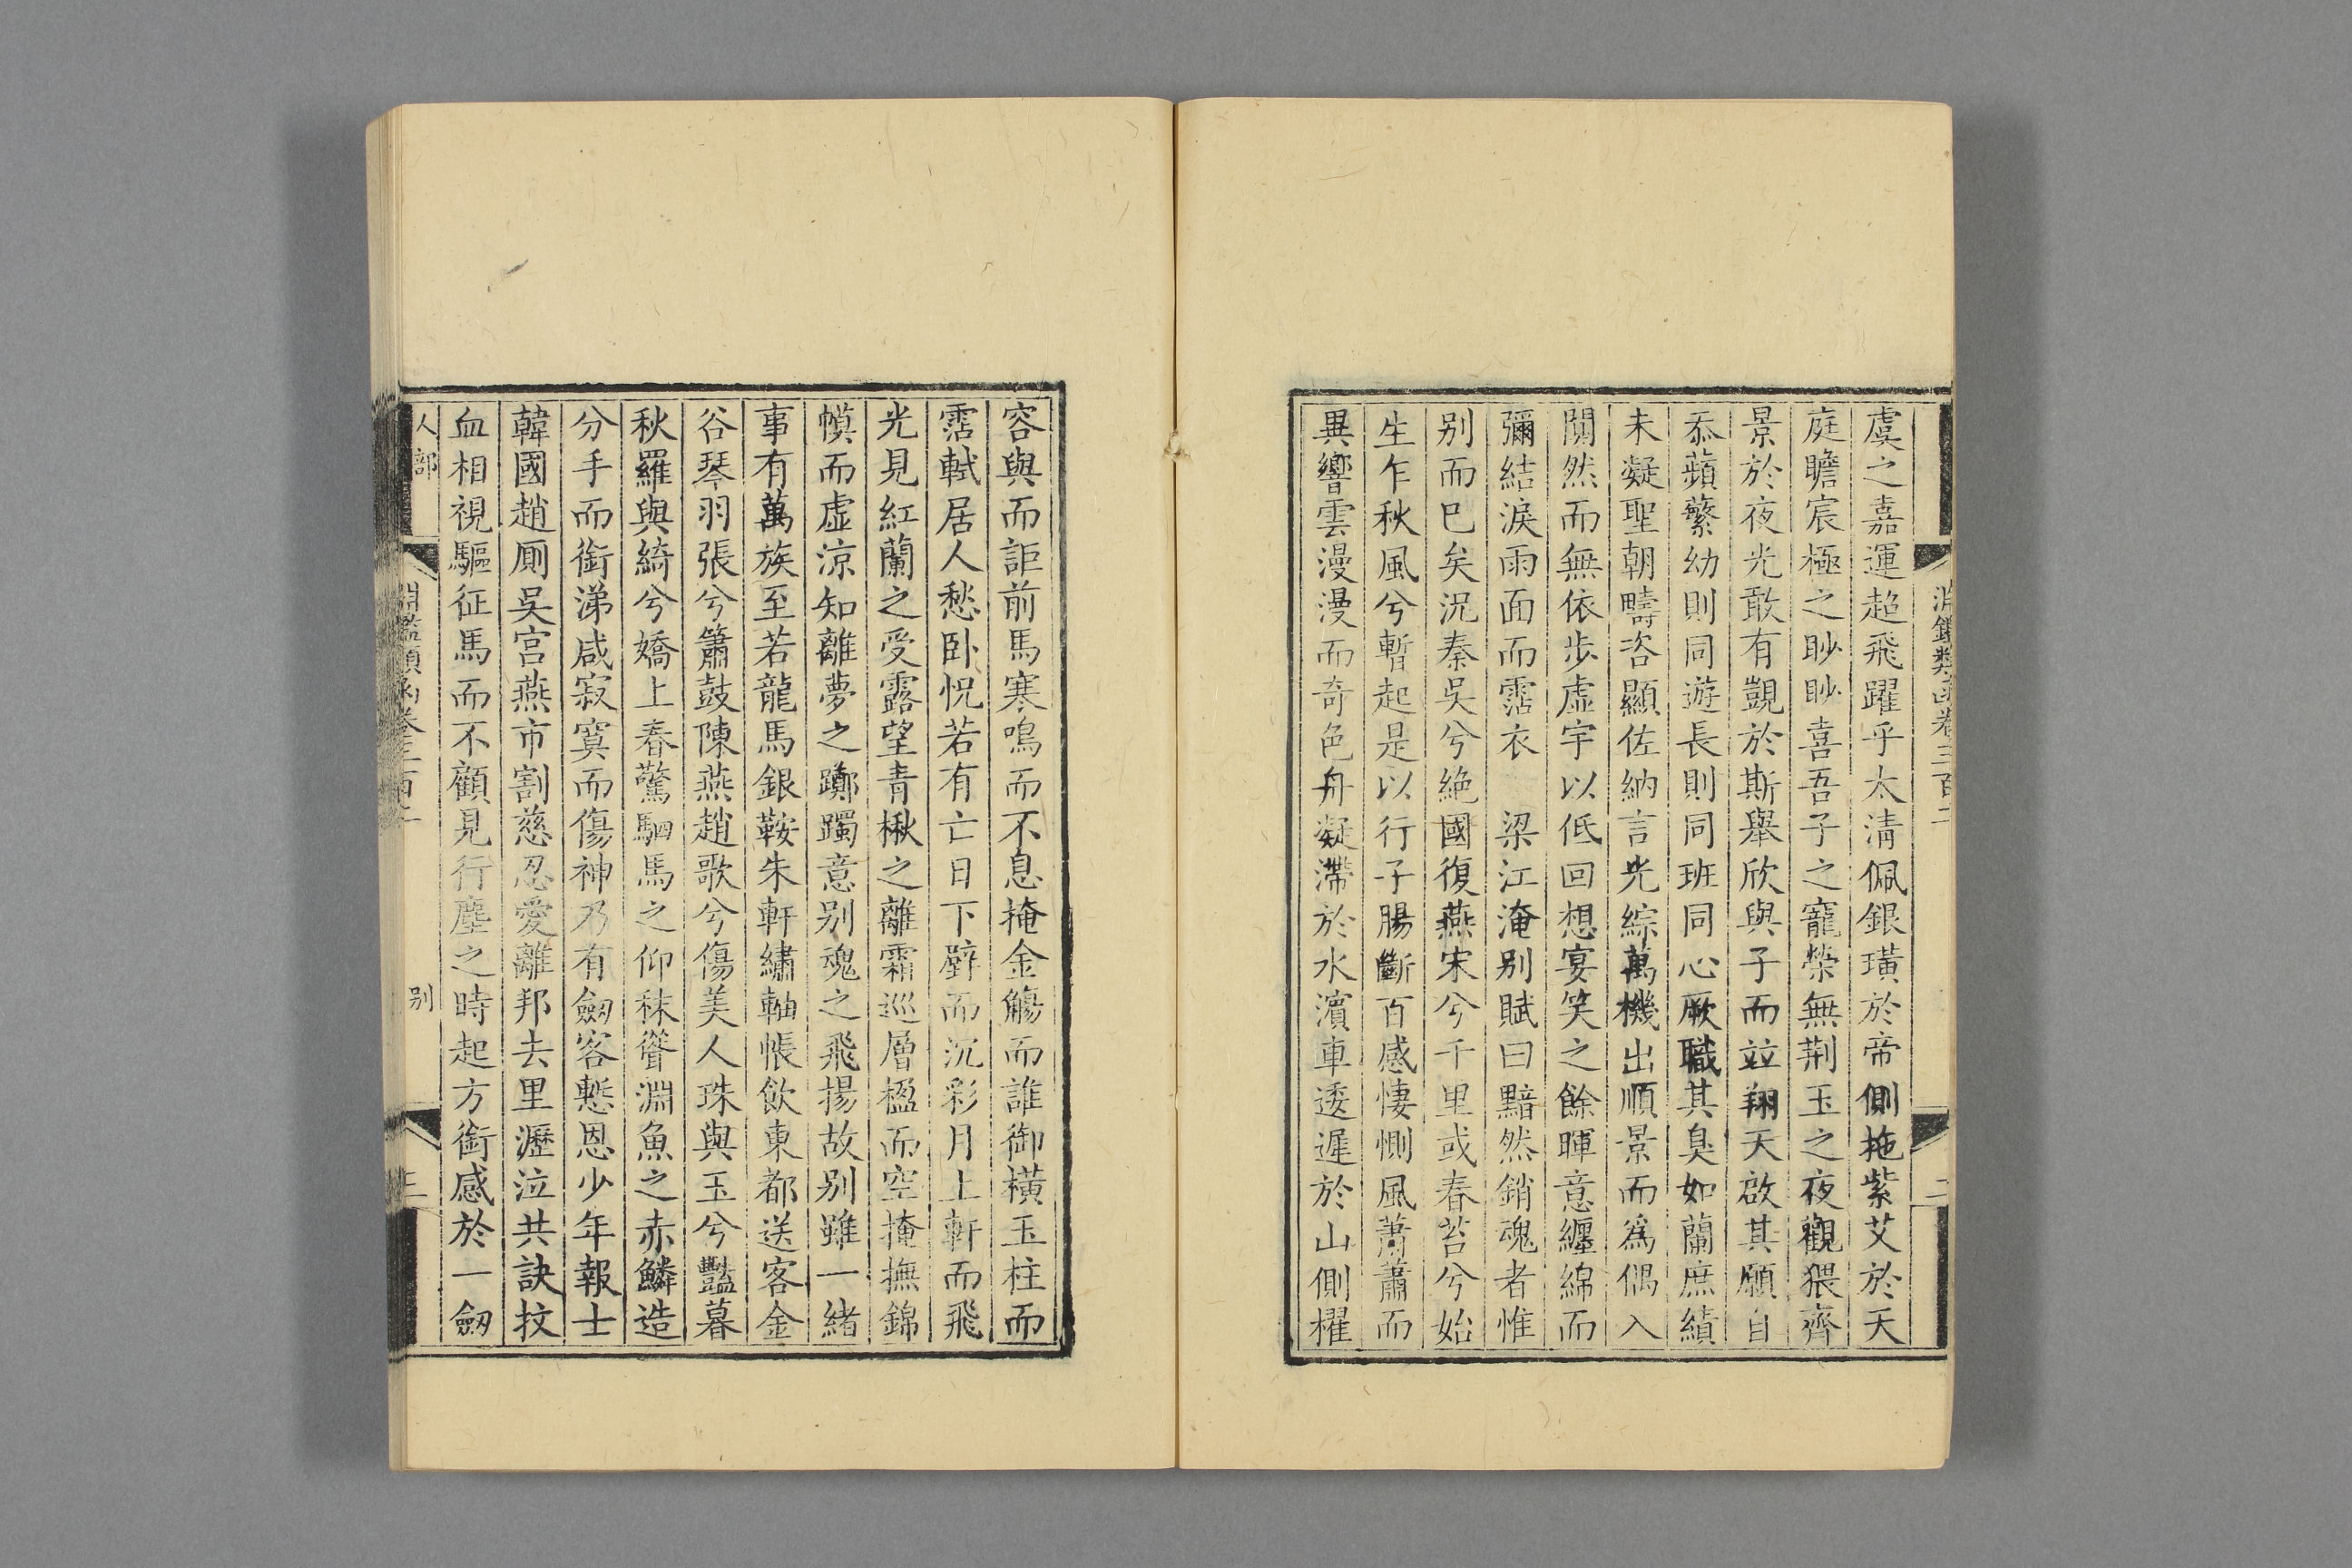 淵鑑類函卷三百二
二
虞之嘉運超飛躍乎太清佩銀璜於帝側拖紫艾於天
庭瞻宸極之眇眇喜吾子之寵榮無荆玉之夜觀猥齊
景於夜光敢有覬於斯舉欣與子而竝翔天啟其願自
忝蘋蘩幼則同遊長則同班同心厥職其臭如蘭庶績
未凝聖朝疇咨顯佐納言光綜萬機出順景而爲偶入
闃然而無依步虛宇以低回想宴笑之餘暉意纏綿而
彌結淚雨面而霑衣　梁江淹别賦曰黯然銷魂者惟
别而巳矣況秦吳兮絶國復燕宋兮千里或春苔兮始
生乍秋風兮暫起是以行子腸斷百感悽惻風蕭蕭而
異響雲漫漫而奇色舟凝滯於水濱車逶遲於山側櫂
容與而詎前馬寒鳴而不息掩金觴而誰御橫玉柱而
霑軾居人愁臥怳若有亡日下壁而沉彩月上軒而飛
光見紅蘭之受露望青楸之離霜巡層楹而空掩撫錦
幙而虛涼知離夢之躑躅意别魂之飛揚故别雖一緒
事有萬族至若龍馬銀鞍朱軒繡軸帳飲東都送客金
谷琴羽張兮簫鼓陳燕趙歌兮傷美人珠與玉兮豔暮
秋羅與綺兮嬌上春驚駟馬之仰秣聳淵魚之赤鱗造
分手而銜涕咸寂寞而傷神乃有劒客慙恩少年報士
韓國趙厠吳宮燕市割慈忍愛離邦去里瀝泣共訣抆
血相視驅征馬而不顧見行塵之時起方銜感於一劒
人部
淵鑑類函卷三百二
别
三